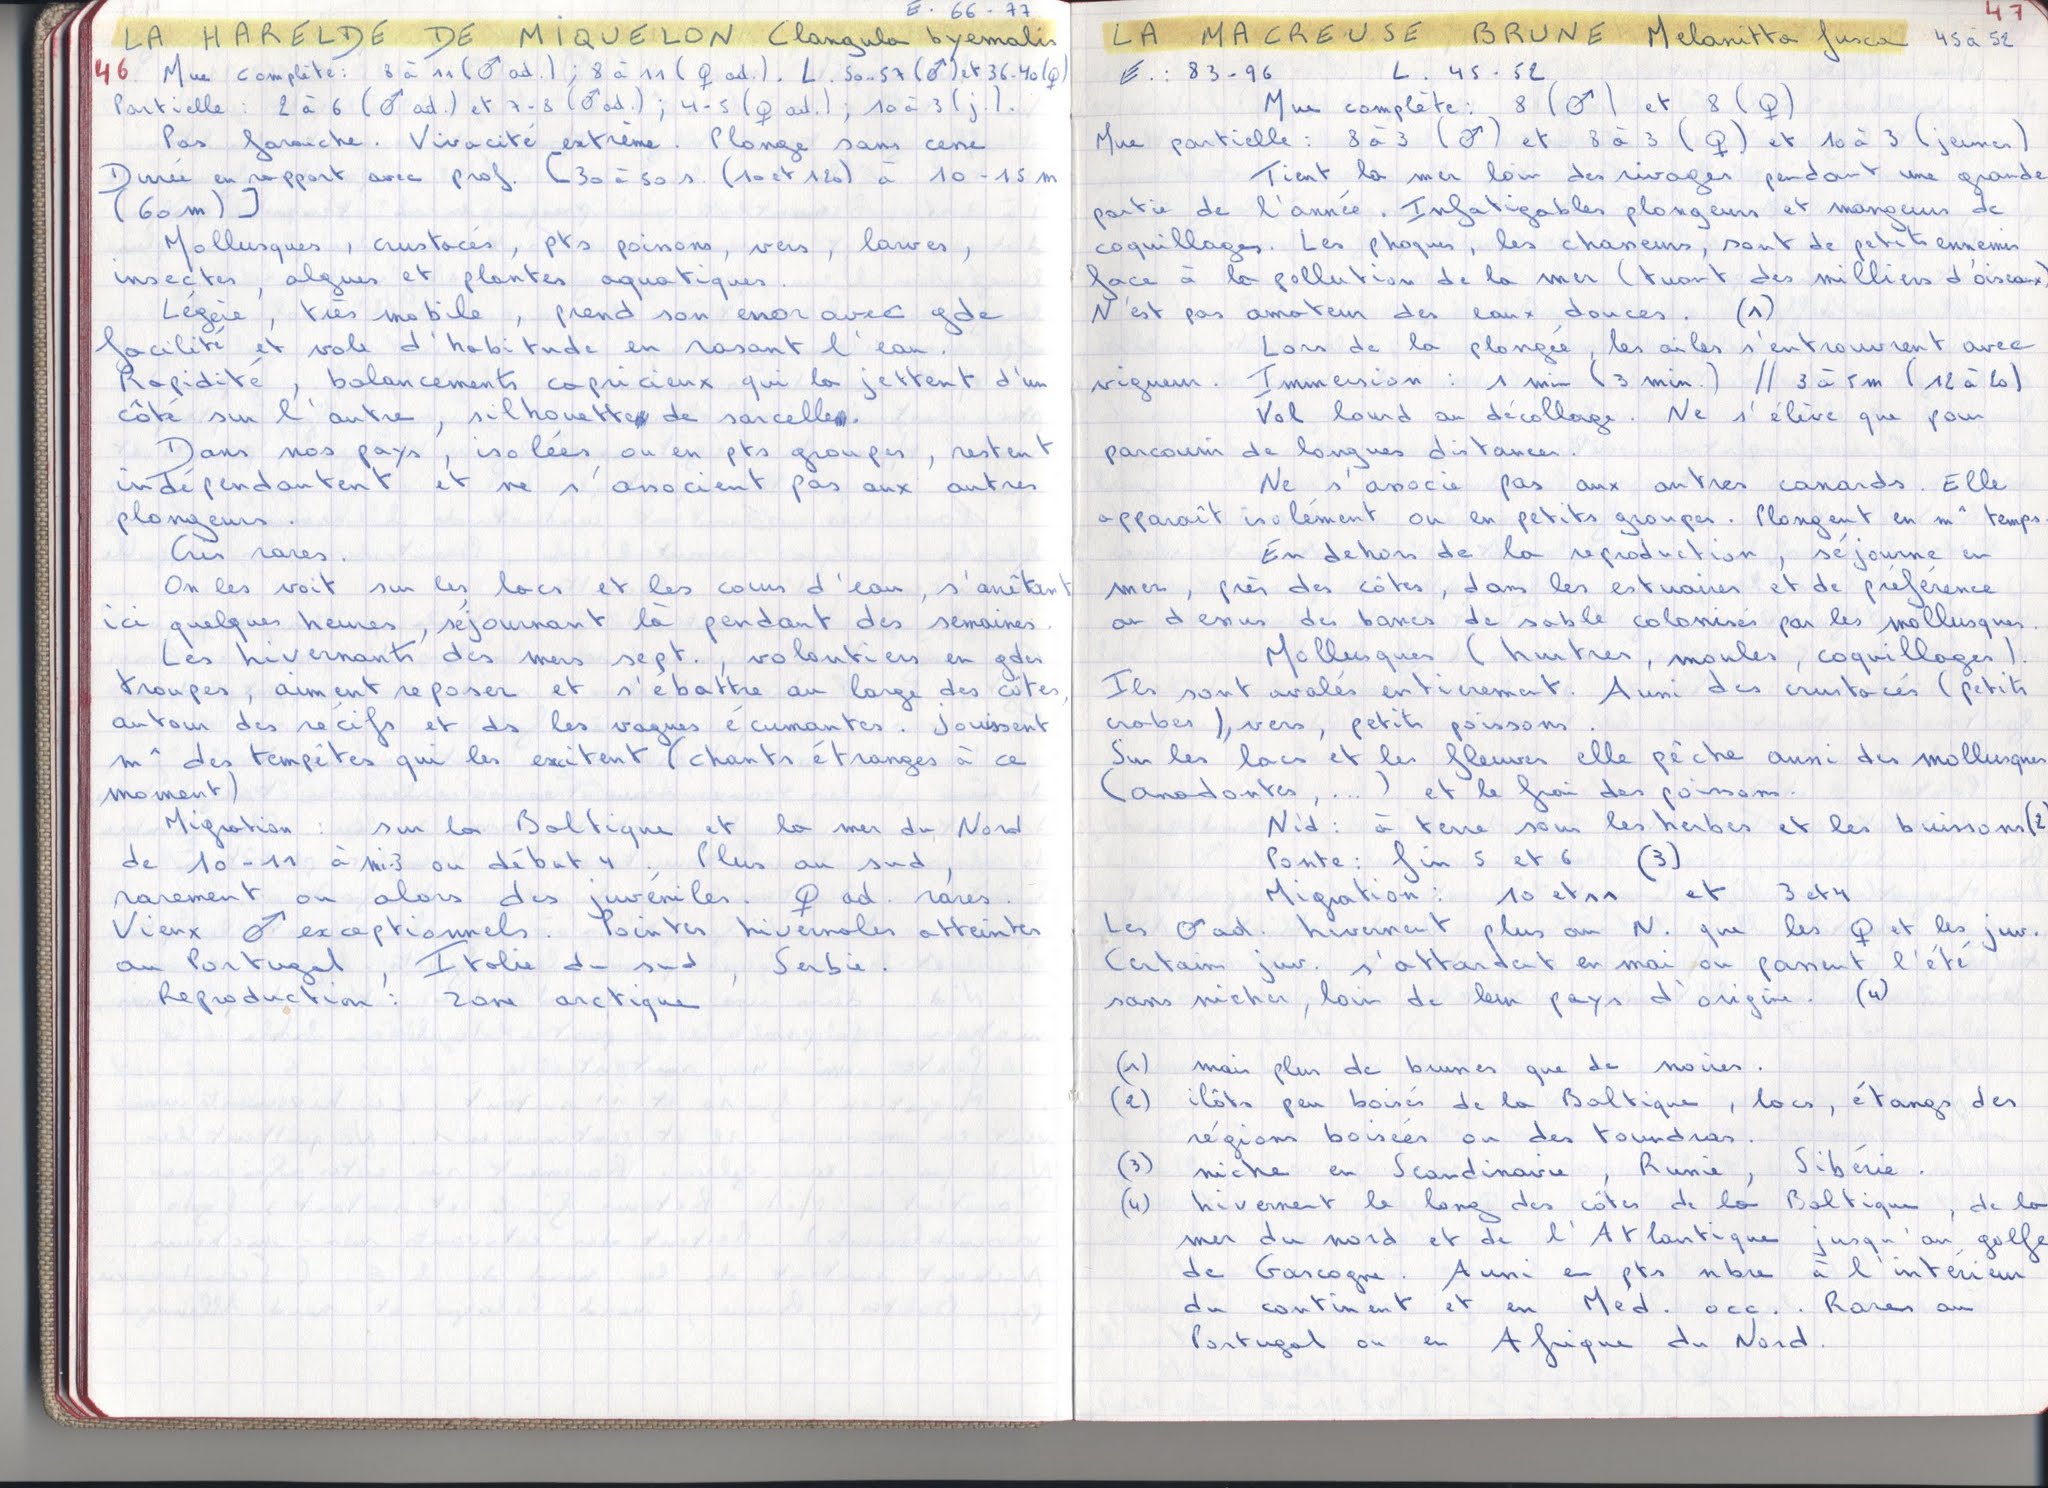 E. 66-77
LA HARELDE DE MIQUELON Clangula hyemalis
46 Mue complète: 8 à 11 (♂ ad.) ; 8 à 11 (♀ ad.). L. 50-57 (♂) et 36-40 (♀)
Partielle : 2 à 6 (♂ ad.) et 7-8 (♂ ad.) ; 4-5 (♀ ad.) ; 10 à 3 (j.).
Pas farouche. Vivacité extrême. Plonge sans cesse
Durée en rapport avec prof. [30 à 50 s. (10 et 120) à 10-15 m
(60 m)]
Mollusques, crustacés, pts poissons, vers, larves,
insectes, algues et plantes aquatiques.
Légère, très mobile, prend son essor avec gde
facilité et vole d'habitude en rasant l'eau.
Rapidité, balancements capricieux qui la jettent d'un
côté sur l'autre, silhouette de sarcelle.
Dans nos pays, isolées ou en pts groupes, restent
indépendantent et ne s'associent pas aux autres
plongeurs.
Cris rares.
On les voit sur les lacs et les cours d'eau, s'arrêtant
ici quelques heures, séjournant là pendant des semaines.
Les hivernants des mers sept., volontiers en gdes
troupes, aiment reposer et s'ébattre au large des côtes,
autour des récifs et ds les vagues écumantes. Jouissent
m^ des tempêtes qui les excitent (chants étranges à ce
moment)
Migration : sur la Baltique et la mer du Nord
de 10-11 à mi-3 ou début 4. Plus au sud,
rarement ou alors des juvéniles. ♀ ad. rares.
Vieux ♂ exceptionnels. Pointes hivernales atteintes
au Portugal, Italie du sud, Serbie.
Reproduction : zone arctique
47
LA MACREUSE BRUNE Melanitta fusca 45 à 52
E. : 83-96 L. 45-52
Mue complète : 8 (♂) et 8 (♀)
Mue partielle : 8 à 3 (♂) et 8 à 3 (♀) et 10 à 3 (jeunes)
Tient la mer loin des rivages pendant une grande
partie de l'année. Infatigables plongeurs et mangeurs de
coquillages. Les phoques, les chasseurs, sont de petits ennemis
face à la pollution de la mer (tuant des milliers d'oiseaux)
N'est pas amateur des eaux douces. (1)
Lors de la plongée, les ailes s'entrouvrent avec
vigueur. Immersion : 1 min (3 min.) // 3 à 5m (12 à 20)
Vol lourd au décollage. Ne s'élève que pour
parcourir de longues distances.
Ne s'associe pas aux autres canards. Elle
apparaît isolément ou en petits groupes. Plongent en m^ temps.
En dehors de la reproduction, séjourne en
mer, près des côtes, dans les estuaires et de préférence
au dessus des bancs de sable colonisés par les mollusques.
Mollusques (huitres, moules, coquillages).
Ils sont avalés entierement. Aussi des crustacés (petits
crabes), vers, petits poissons.
Sur les lacs et les fleuves elle pêche aussi des mollusques
(anodontes, ...) et le frai des poissons.
Nid : à terre sous les herbes et les buissons (2)
Ponte : fin 5 et 6 (3)
Migration : 10 et 11 et 3 et 4
Les ♂ ad. hivernent plus au N. que les ♀ et les juv.
Certains juv. s'attardent en mai ou passent l'été
sans nicher, loin de leur pays d'origine. (4)
(1) mais plus de brunes que de noires.
(2) ilôts peu boisés de la Baltique, lacs, étangs des
régions boisées ou des toundras.
(3) niche en Scandinavie, Russie, Sibérie.
(4) hivernent le long des côtes de la Baltique, de la
mer du nord et de l'Atlantique jusqu'au golfe
de Gascogne. Aussi en pts nbre à l'intérieur
du continent et en Méd. occ.. Rares au
Portugal ou en Afrique du Nord.